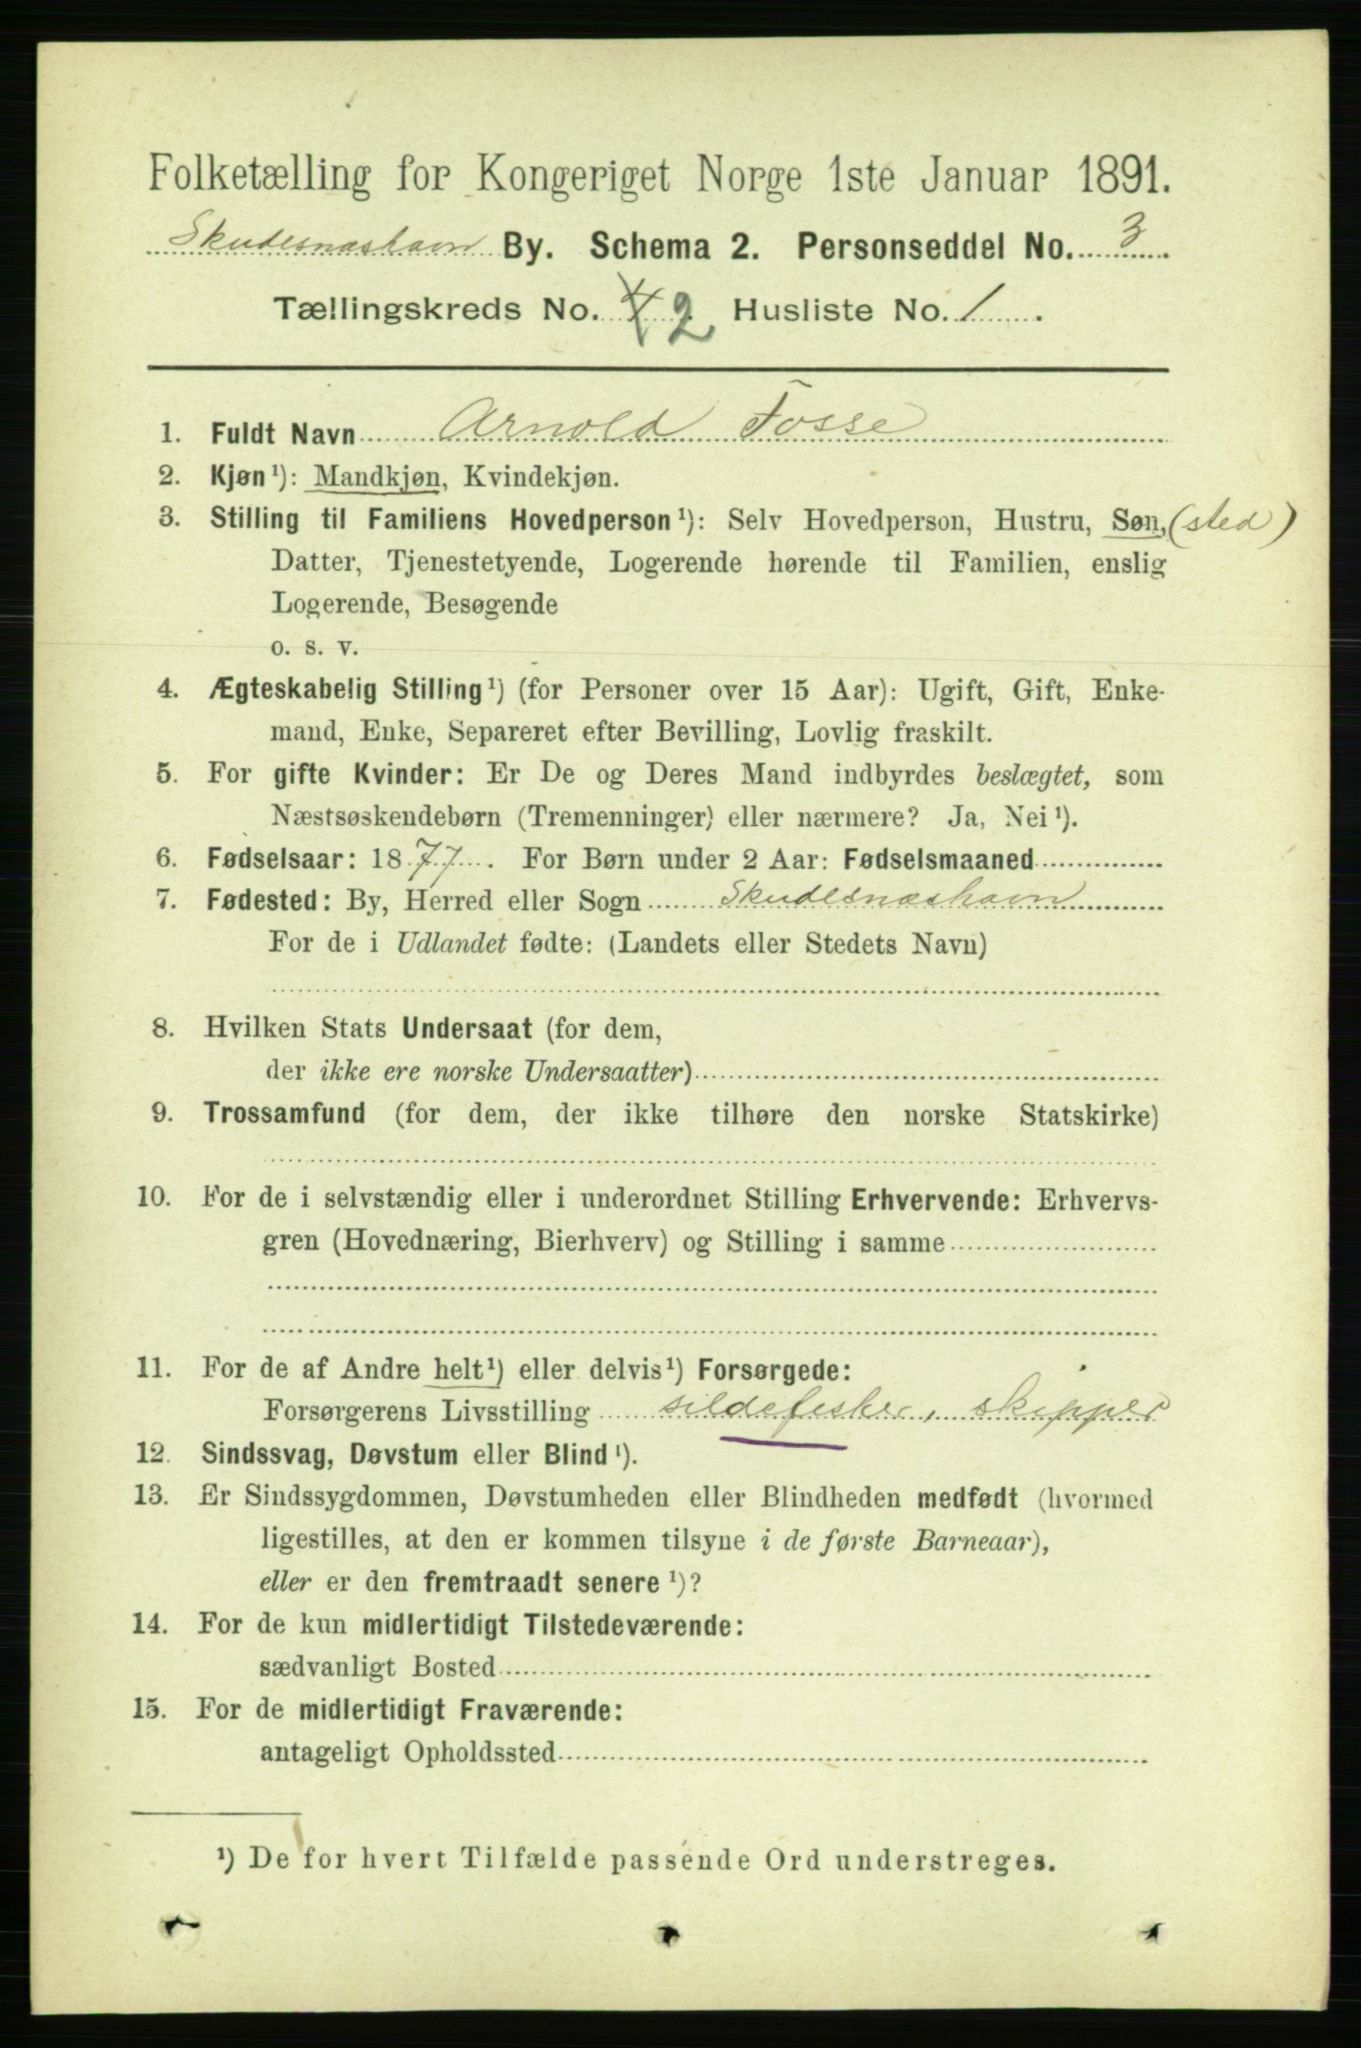 Folketælling for Kongeriget Norge 1ste Januar 1891.
Skudesnæshavn By. Schema 2. Personseddel No. 3
Tællingskreds No. 4 2 Husliste No. 1.
1. Fuldt Navn Arnold Fosse
2. Kjøn¹): Mandkjøn, Kvindekjøn.
3. Stilling til Familiens Hovedperson¹): Selv Hovedperson, Hustru, Søn, (sted)
Datter, Tjenestetyende, Logerende hørende til Familien, enslig
Logerende, Besøgende
o. s. v.
4. Ægteskabelig Stilling¹) (for Personer over 15 Aar): Ugift, Gift, Enke-
mand, Enke, Separeret efter Bevilling, Lovlig fraskilt.
5. For gifte Kvinder: Er De og Deres Mand indbyrdes beslægtet, som
Næstsøskendebørn (Tremenninger) eller nærmere? Ja, Nei¹).
6. Fødselsaar: 1877. For Børn under 2 Aar: Fødselsmaaned
7. Fødested: By, Herred eller Sogn Skudesnæshavn
For de i Udlandet fødte: (Landets eller Stedets Navn)
8. Hvilken Stats Undersaat (for dem,
der ikke ere norske Undersaatter)
9. Trossamfund (for dem, der ikke tilhøre den norske Statskirke)
10. For de i selvstændig eller i underordnet Stilling Erhvervende: Erhvervs-
gren (Hovednæring, Bierhverv) og Stilling i samme
11. For de af Andre helt¹) eller delvis¹) Forsørgede:
Forsørgerens Livsstilling sildefisker, skipper
12. Sindssvag, Døvstum eller Blind¹).
13. Er Sindssygdommen, Døvstumheden eller Blindheden medfødt (hvormed
ligestilles, at den er kommen tilsyne i de første Barneaar),
eller er den fremtraadt senere¹)?
14. For de kun midlertidigt Tilstedeværende:
sædvanligt Bosted
15. For de midlertidigt Fraværende:
antageligt Opholdssted
¹) De for hvert Tilfælde passende Ord understreges.